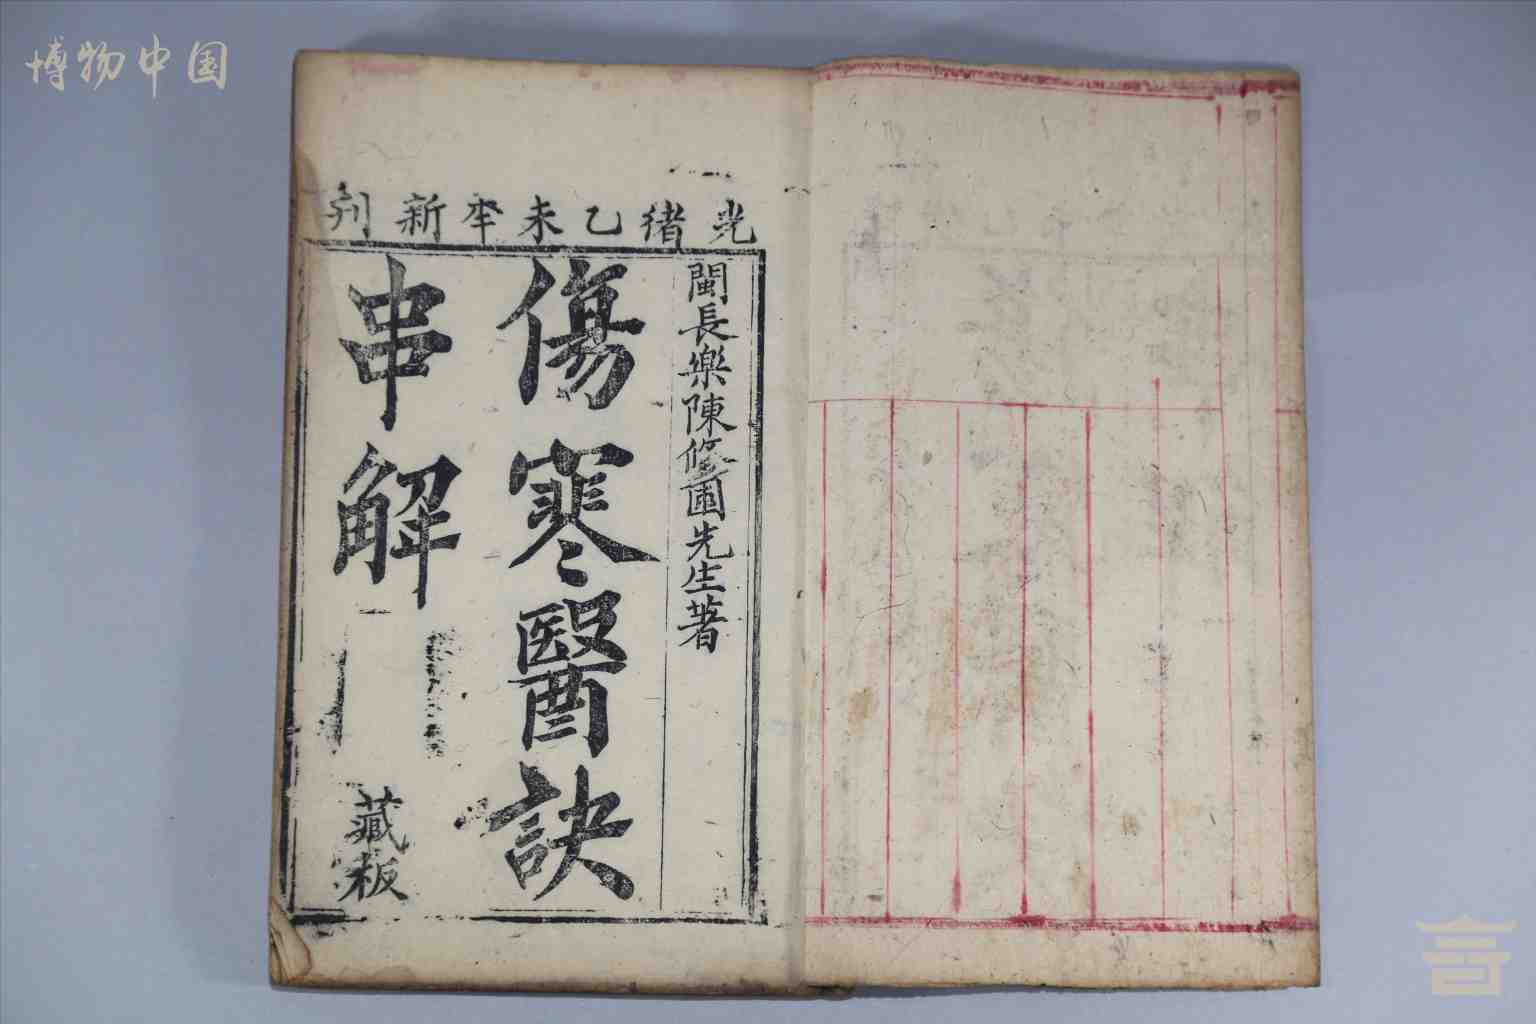 博物中国
光緒乙未年新刊
閩長樂陳修園先生著
傷寒醫訣
串解
藏板